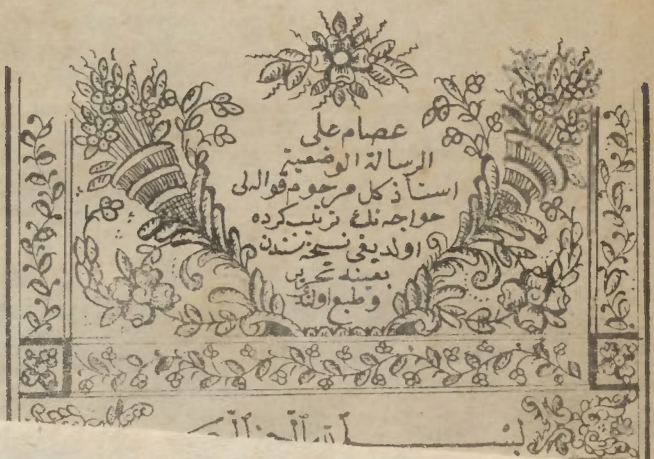 عصام على
الرسالة الوضعية
استاذ كل مرحوم قواله لى
خواجه نك ترتيب كرده
اولديغى نسخه سندن
بعينه تحرير
وطبع اولندى
بسم الله الرحمن الرحيم